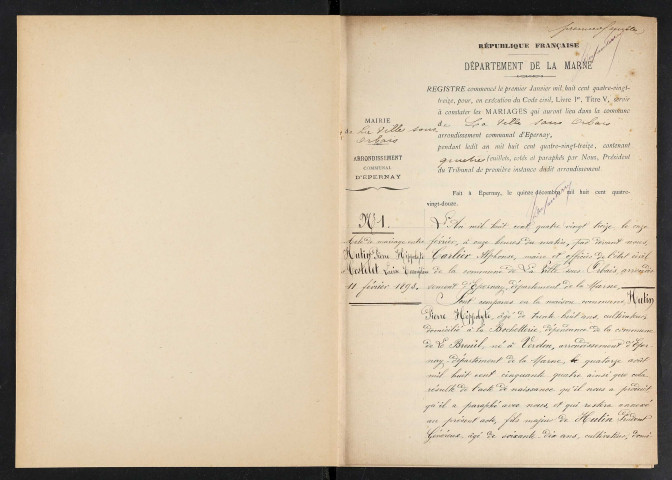 premier feuillet
RÉPUBLIQUE FRANÇAISE
DÉPARTEMENT DE LA MARNE
REGISTRE commencé le premier Janvier mil huit cent quatre-vingt-
treize, pour, en exécution du Code civil, Livre Ier, Titre V, servir
à constater les MARIAGES qui auront lieu dans la commune
de La Ville sous Orbais
arrondissement communal d'Epernay,
pendant ledit an mil huit cent quatre-vingt-treize, contenant
feuillets, cotés et paraphés par Nous, Président
du Tribunal de première instance dudit arrondissement.
Fait à Epernay, le quinze décembre mil huit cent quatre-
vingt-douze.
MAIRIE
de La Ville sous
Orbais
ARRONDISSEMENT
COMMUNAL
D'ÉPERNAY
No 1.
Acte de mariage entre
Hutin Pierre Hippolyte
Louise
11 février 1893.
L'An mil huit cent quatre vingt treize le onze
février, à onze heures du matin, par devant nous,
Cartier Alphonse, maire et officier de l'état civil
de la commune de La Ville sous Orbais arrondis-
sement d'Epernay, département de la Marne,
Sont comparus en la maison commune, Hutin
Pierre Hippolyte, âgé de trente huit ans, cultivateur,
domicilié à la Rochetterie, dépendance de la commune
de Le Breuil, né à Verdon, arrondissement d'Eper-
nay, département de la Marne, le quatorze août
mil huit cent cinquante quatre, ainsi que cela
résulte de l'acte de naissance qu'il nous a produit
qu'il a paraphé avec nous et qui restera annexé
au présent acte, fils majeur de Hutin
âgé de soixante dix ans, cultivateur, domi-